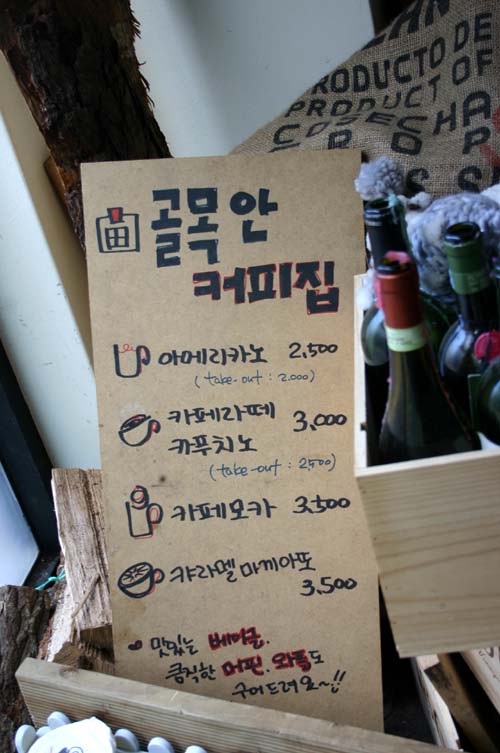 RODUCTO DE
PRODUCT OF
COSECHA
CROP
골목 안
커피집
아메리카노 2,500
(take-out : 2,000)
카페라떼 3,000
카푸치노
(take-out : 2,500)
카페모카 3,500
캬라멜 마끼아또
3,500
맛있는 베이글,
큼직한 머핀, 와플도
구어드려요~!!